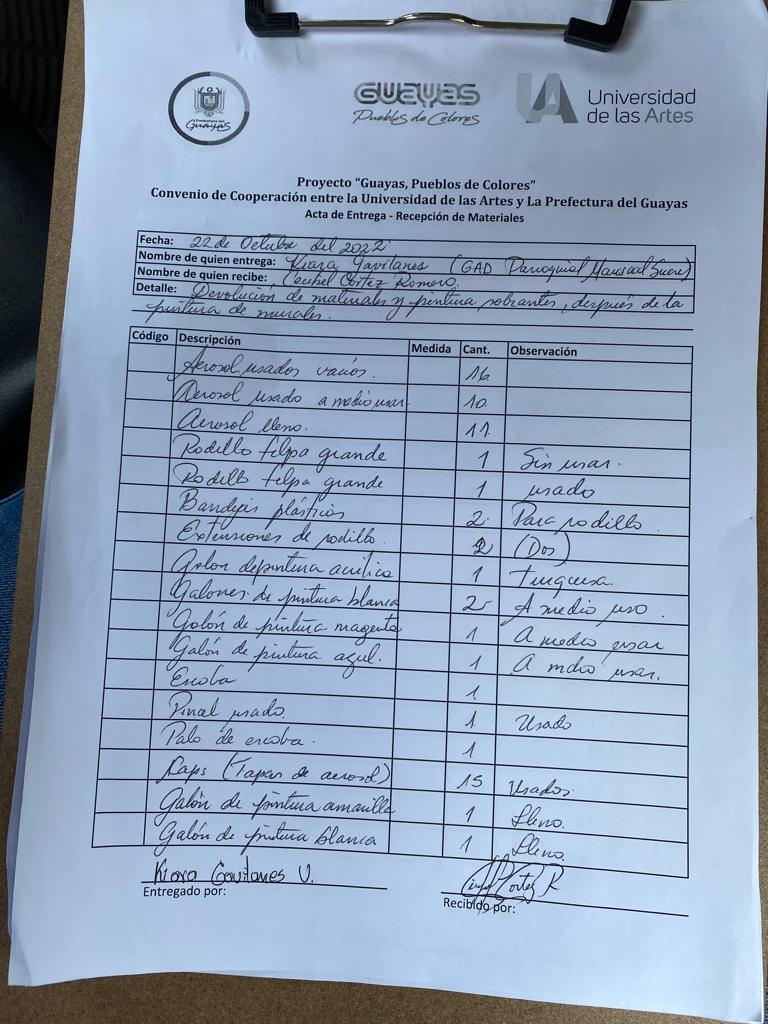 Prefectura del
Guayas
GUAYAS
Pueblos de Colores
UA
Universidad
de las Artes
Proyecto “Guayas, Pueblos de Colores”
Convenio de Cooperación entre la Universidad de las Artes y La Prefectura del Guayas
Acta de Entrega - Recepción de Materiales
Fecha: 22 de Octubre del 2022
Nombre de quien entrega: Kiara Gavilanes (GAD Parroquial Mariscal Sucre)
Nombre de quien recibe: Cortez Romero.
Detalle: Devolución de materiales y pintura sobrantes, después de la
pintura de murales.
Código Descripción Medida Cant. Observación
Aerosol usados varios. 16
Aerosol usado a medio usar 10
Aerosol lleno. 11
Rodillo felpa grande 1 Sin usar.
Rodillo felpa grande 1 usado
Bandejas plásticas 2 Para rodillo
Extensiones de rodillo. 2 (Dos)
Galon de pintura acrilica 1 Turquesa.
Galones de pintura blanca 2 A medio uso.
Galón de pintura magenta 1 A medio usar
Galón de pintura azul. 1 A medio usar.
Escoba 1
Pincel usado. 1 Usado
Palo de escoba. 1
Caps (Tapas de aerosol) 15 Usados
Galón de pintura amarilla 1 Lleno.
Galón de pintura blanca 1 Lleno.
Kiara Gavilanes V. Cortez R
Entregado por: Recibido por: